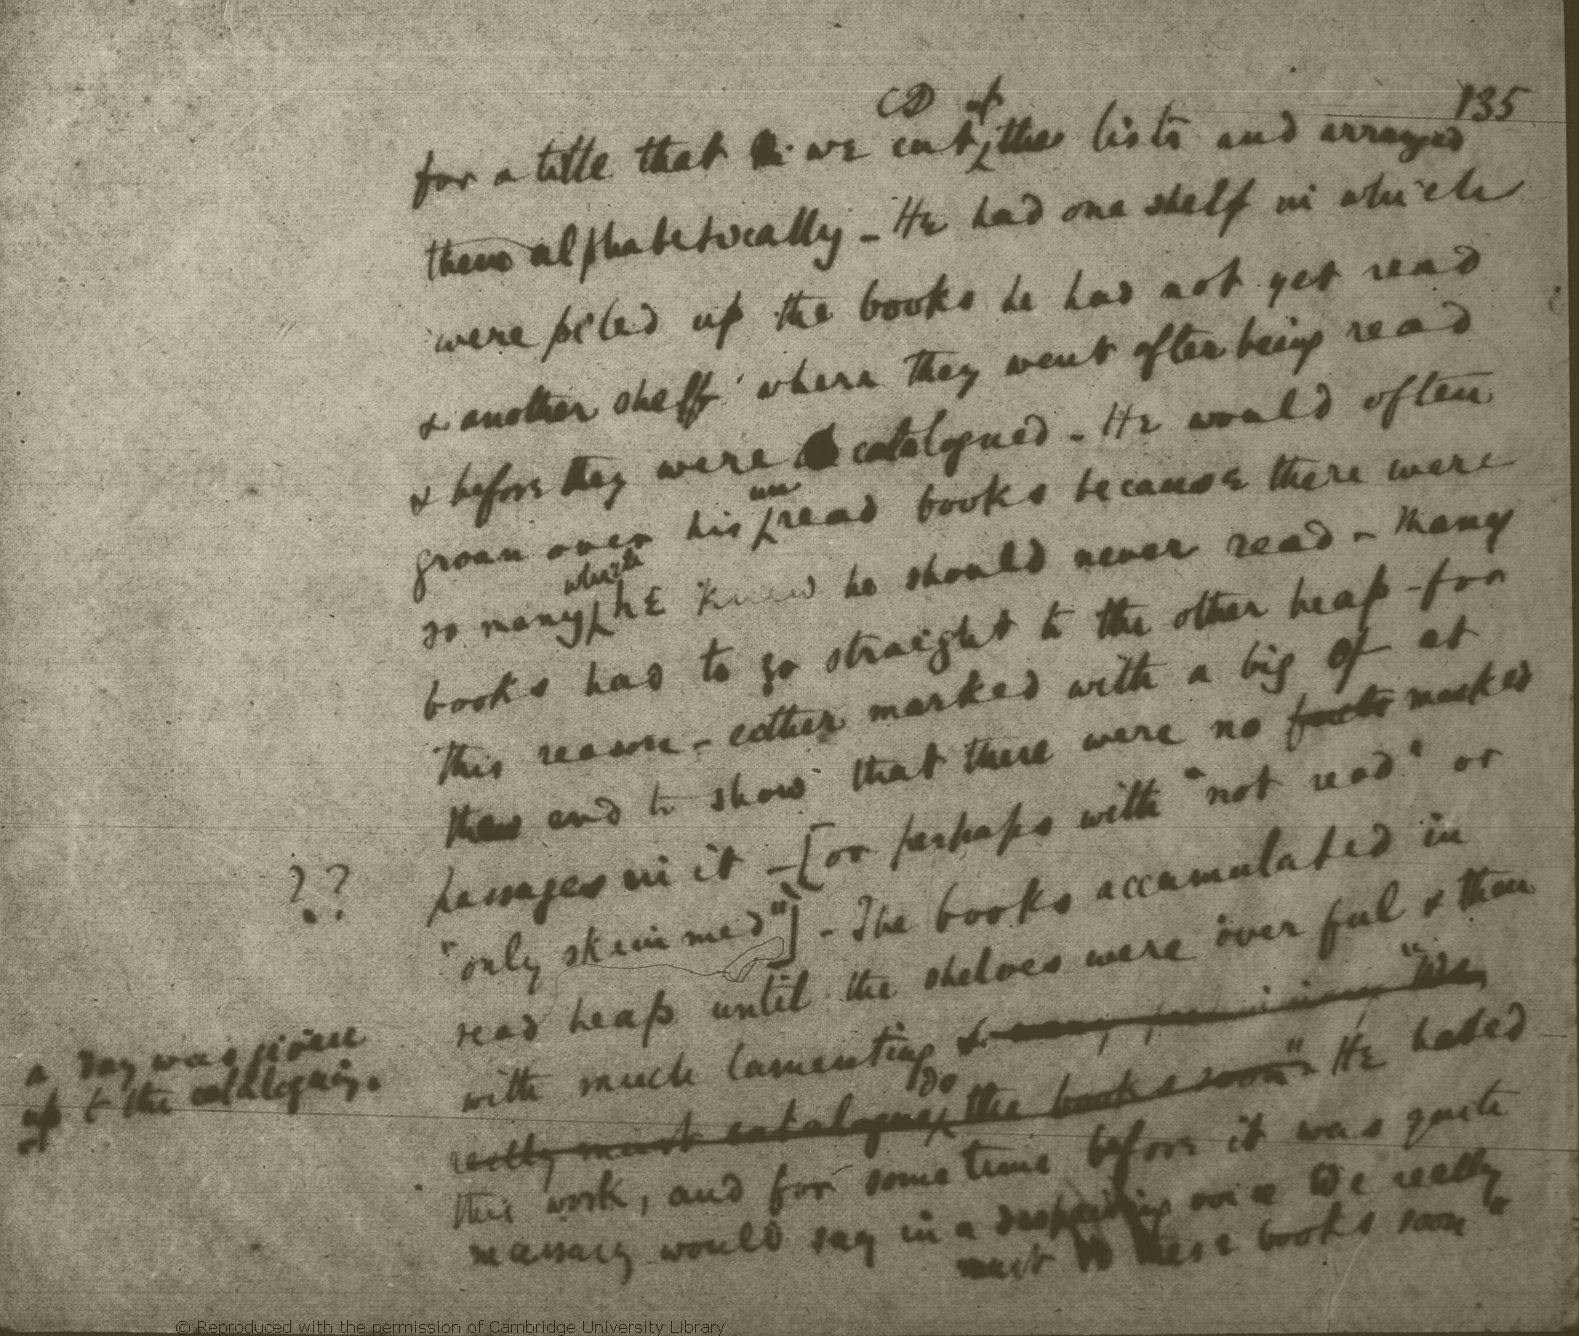 135
CD up
for a title that we cut the lists and arranged
them alphabetically - He had one shelf in which
were piled up the books he had not yet read
& another shelf where they went after being read
& before they were catalogued - He would often
un
groan over his read books because there were
which
so many he knew he should never read - Many
books had to go straight to the other heap - for
this reason - either marked with a big 0 at
the end to show that there were no facts marked
passages in it - [or perhaps with "not read" or
? ?
"only skimmed"] - The books accumulated in
read heap until the shelves were over ful & then
with much lamenting & "We
a day was given
up to the cataloguing.
do
really must catalogue the books soon" He hated
this work, and for some time before it was quite
necessary would say in a despairing voice We really
must do these books soon"
© Reproduced with the permission of Cambridge University Library